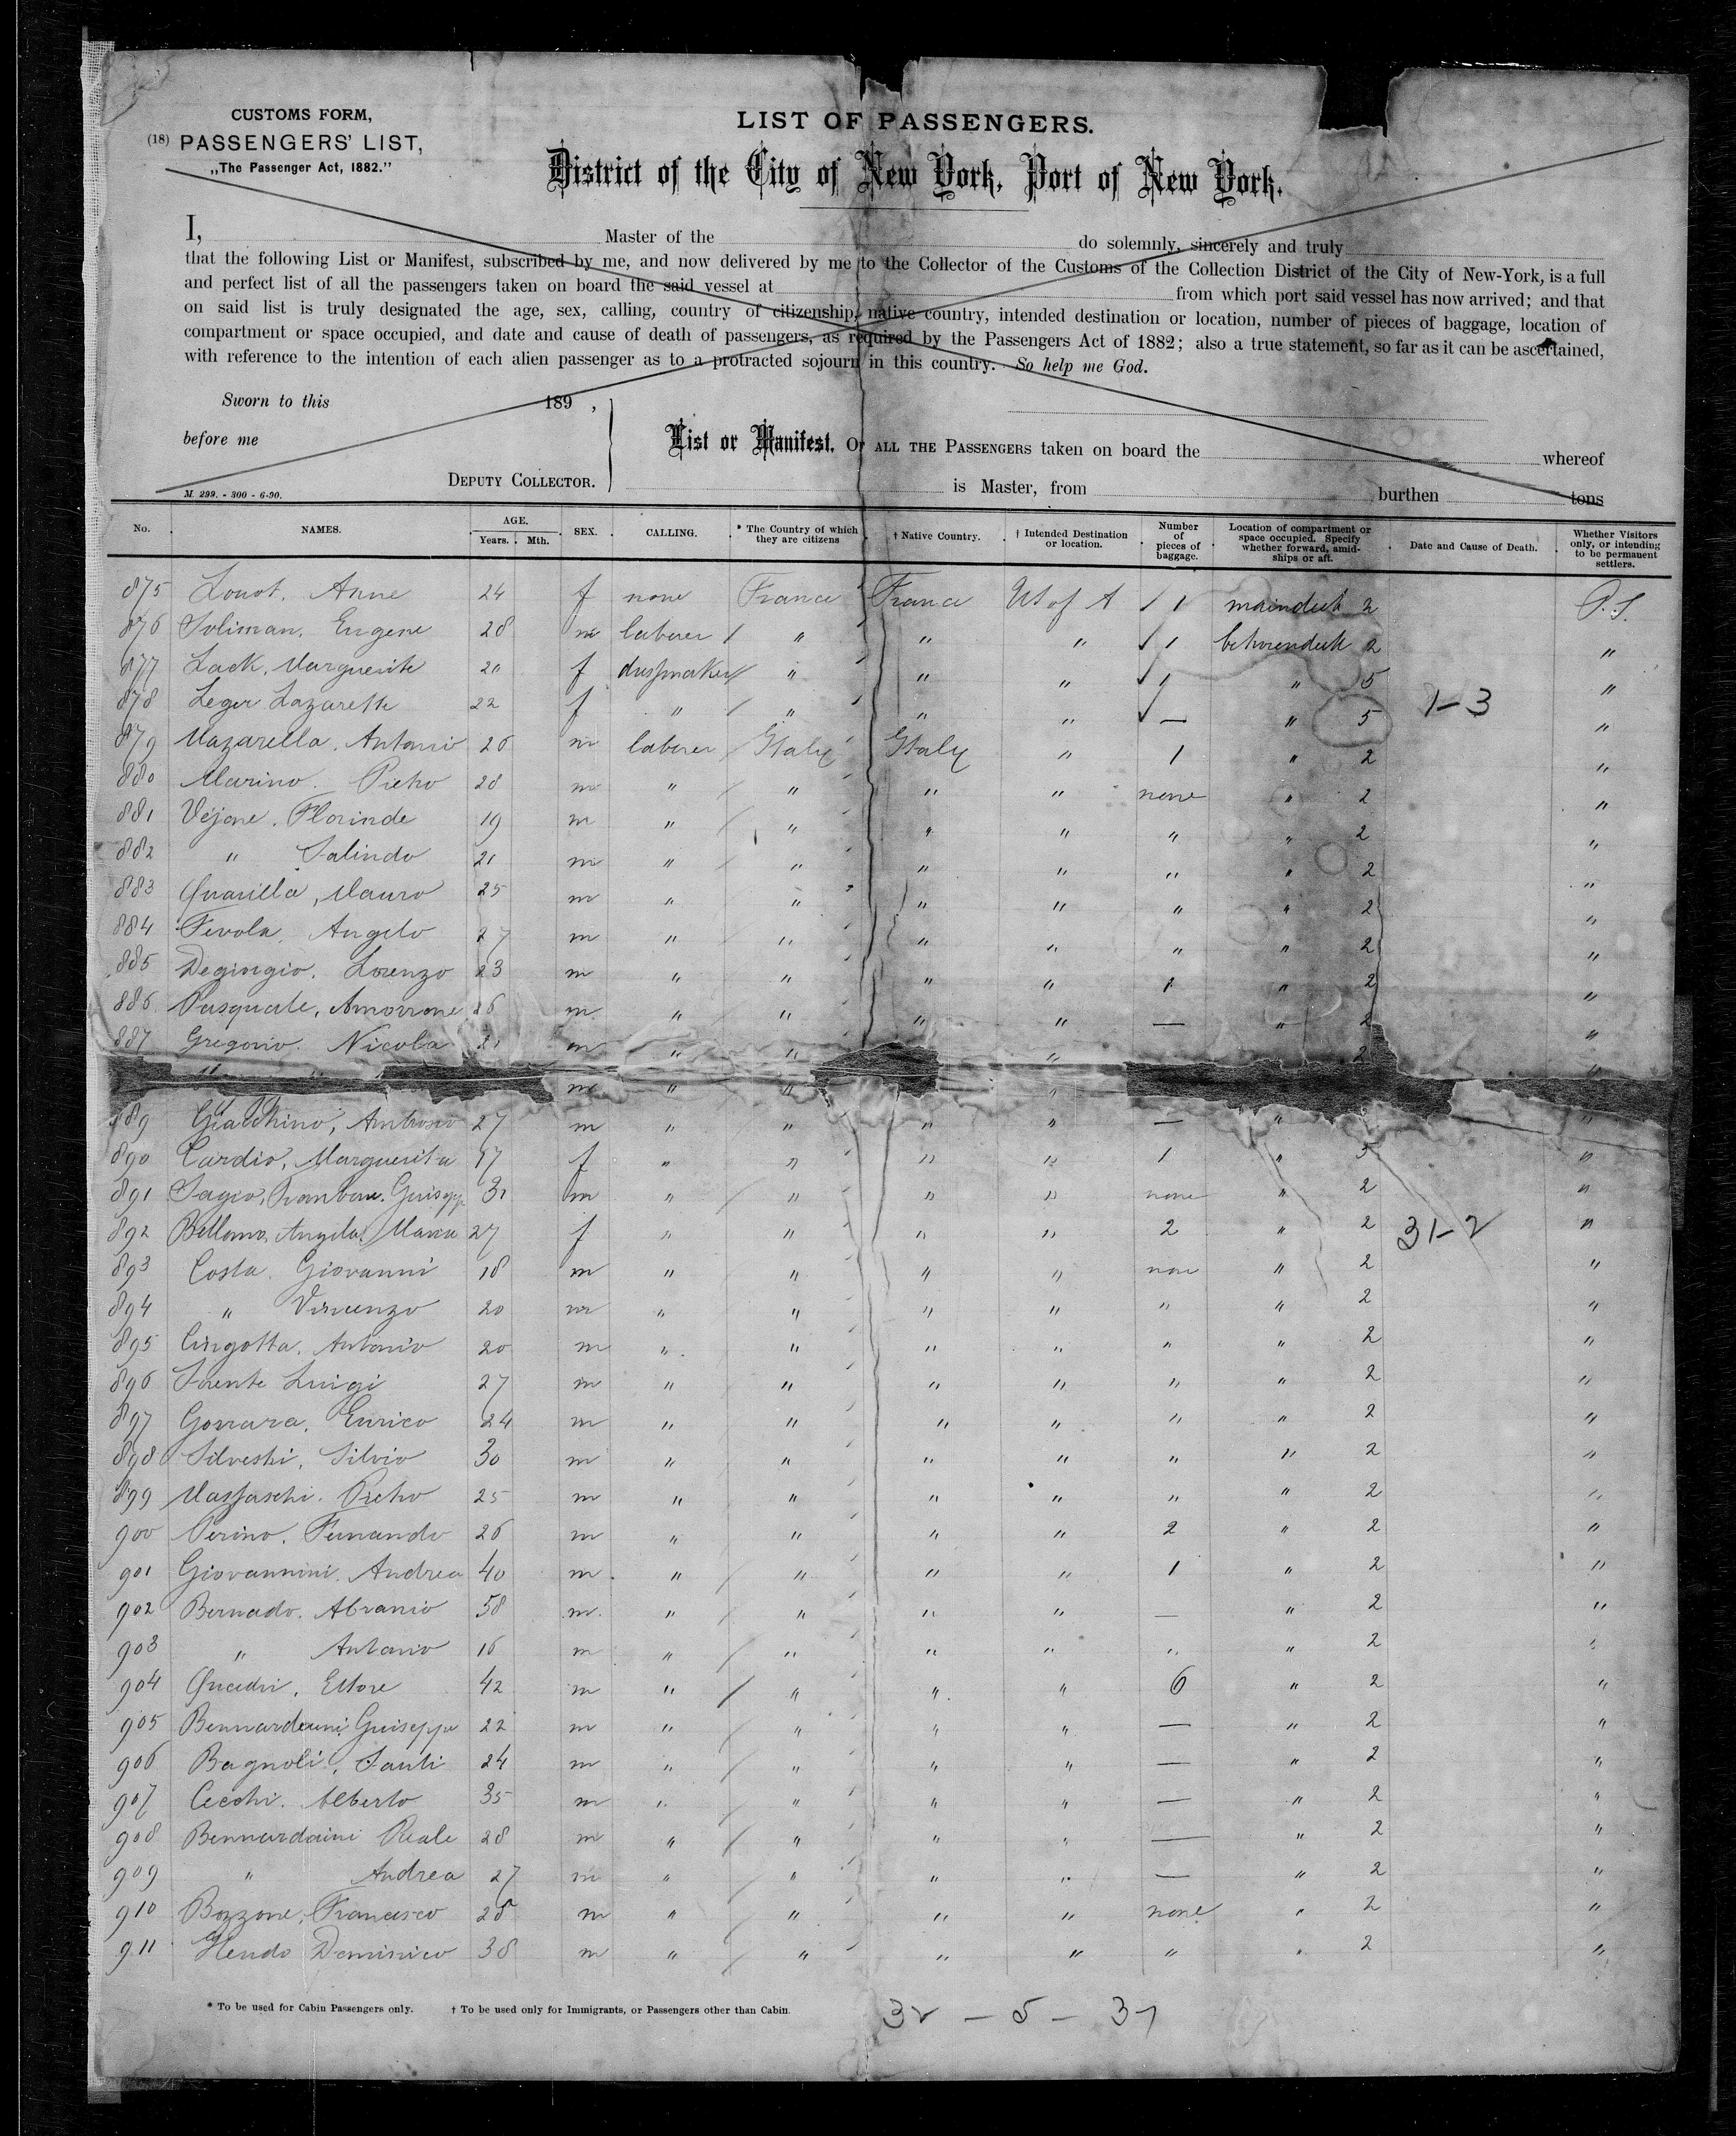 CUSTOMS FORM,
(18) PASSENGERS' LIST,
„The Passenger Act, 1882."
LIST OF PASSENGERS.
District of the City of New York, Port of New York.
I, Master of the do solemnly, sincerely and truly
that the following List or Manifest, subscribed by me, and now delivered by me to the Collector of the Customs of the Collection District of the City of New-York, is a full
and perfect list of all the passengers taken on board the said vessel at from which port said vessel has now arrived; and that
on said list is truly designated the age, sex, calling, country of citizenship, native country, intended destination or location, number of pieces of baggage, location of
compartment or space occupied, and date and cause of death of passengers, as required by the Passengers Act of 1882; also a true statement, so far as it can be ascertained,
with reference to the intention of each alien passenger as to a protracted sojourn in this country. So help me God.
Sworn to this 189 ,
before me
DEPUTY COLLECTOR.
M. 299. - 300 - 6-90.
List or Manifest. OF ALL THE PASSENGERS taken on board the whereof
is Master, from burthen tons
No. NAMES. AGE. Years. Mth. SEX. CALLING. * The Country of which they are citizens † Native Country. † Intended Destination or location. Number of pieces of baggage. Location of compartment or space occupied. Specify whether forward, amidships or aft. Date and Cause of Death. Whether Visitors only, or intending to be permanent settlers.
875 Louot, Anne 24 f none France France US of A 1 maindeck 2 P.S.
876 Soliman, Eugene 28 m laborer " " " 1 betweendeck 2 "
877 Lack, Marguerite f dressmaker " " " 1 " 5 "
878 Leger Lazarette 22 f " " " " — " 5 1-3 "
879 Mazarella, Antonio 26 m laborer Italy Italy " 1 " 2 "
880 Marino, Pietro 28 m " " " " none " 2 "
881 Vejone, Florinde 19 m " " " " " " 2 "
882 " Salindo 21 m " " " " " " 2 "
883 Mauro 25 m " " " " " " 2 "
884 Fevola, Angelo 27 m " " " " " " 2 "
885 Degiorgio, Lorenzo 23 m " " " " 1 " 2 "
886 Pasquale, Amorrone m " " " " — " 2 "
887 Gregorio, Nicola 21 m " " " 2 "
m " " "
889 Giacchino, Ambrosio 27 m " " " " — " "
890 Cardio, Marguerita 17 f " " " " 1 " 5 "
891 Sagio, Guisepp 31 m " " " " none " 2 "
892 Bellomo, Angela Maria 27 f " " " " 2 " 2 31-2 "
893 Costa, Giovanni 18 m " " " " none " 2 "
894 " Vincenzo 20 m " " " " " " 2 "
895 Cirgotta, Antonio 20 m " " " " " " 2 "
896 Sorente Luigi 27 m " " " " " " 2 "
897 Gorrara, Enrico 24 m " " " " " " 2 "
898 Silvestri, Silvio 30 m " " " " " " 2 "
899 Massaschi, Pietro 25 m " " " " " " 2 "
900 Perino, Fernando 26 m " " " " 2 " 2 "
901 Giovannini, Andrea 40 m " " " " 1 " 2 "
902 Bernado, Abramio 58 m " " " " — " 2 "
903 " Antonio 16 m " " " " " " 2 "
904 Quadri, Ettore 42 m " " " " 6 " 2 "
905 Guiseppe 22 m " " " " — " 2 "
906 Bagnoli, Santi 24 m " " " " — " 2 "
907 Cecchi, Alberto 35 m " " " " — " 2 "
908 Bennardaini Reale 28 m " " " " — " 2 "
909 " Andrea 27 m " " " " — " 2 "
910 Bozzone, Francesco 28 m " " " " none " 2 "
911 Dominico 38 m " " " " " " 2 "
* To be used for Cabin Passengers only. † To be used only for Immigrants, or Passengers other than Cabin.
32 - 5 - 37